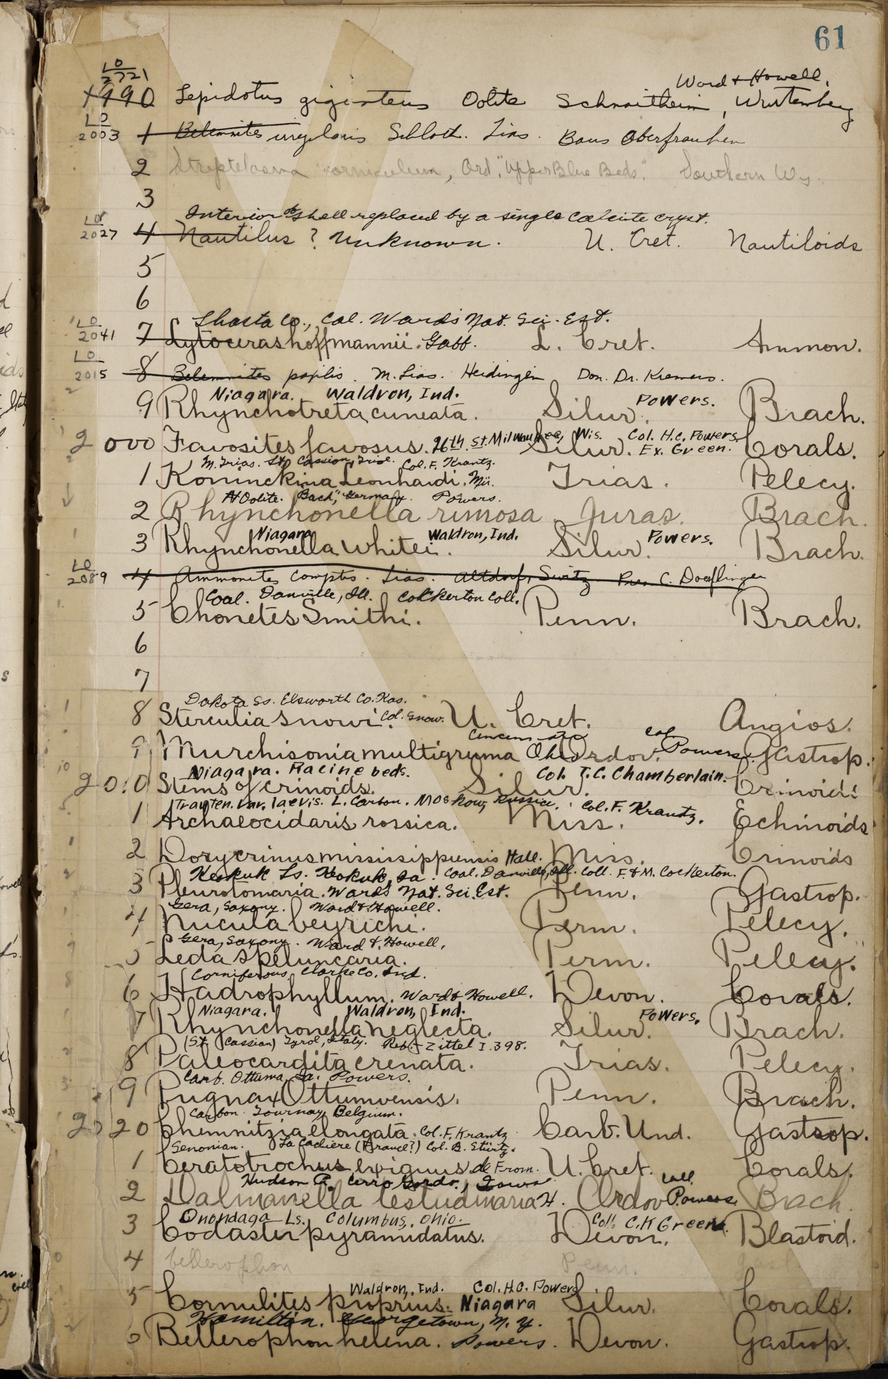 61
LO
2721
1990 Lepidotus giganteus Oolite Schnaitheim, Wurtemberg Ward & Howell.
LO
2003 1 Belemnites Schloth. Lias. Banz Oberfranken
2 Streptelasma corniculum, Ord. "Upper Blue Beds." Southern
3
Interior of shell replaced by a single calcite cryst.
LO
2027 4 Nautilus ? Unknown. U. Cret. Nautiloids
5
6
Shasta Co., Cal. Ward's Nat. Sci. Est.
LO
2041 7 Lytoceras hoffmannii Gabb. L. Cret. Ammon.
LO
2015 8 Belemnites papilis. M. Lias. Don. Dr. Kremers.
Niagara. Waldron, Ind. Powers.
9 Rhynchotreta cuneata. Silur. Brach.
2000 Favosites favosus. 26th St. Milwaukee, Wis. Silur. Col. H.C. Powers Ex. Green. Corals.
M. Trias. St. Cassian, Tirol. Col. F. Krantz.
1 Koninckina Leonhardi, Trias. Pelecy.
Oolite. Germany. Powers.
2 Rhynchonella rimosa Juras. Brach.
Niagara Waldron, Ind. Powers.
3 Rhynchonella Whitei. Silur. Brach.
LO
2089 4 Ammonites Lias. Altdorf, Pres. C. Doerflinger
Coal. Danville, Ill. Cockerton Coll.
5 Chonetes Smithi. Penn. Brach.
6
7
Dakota Ss. Elsworth Co. Kas.
8 Sterculia Snowi Col. Snow. U. Cret. Angios.
9 Murchisonia multigruma Ohio Ordov. Col. Powers. Gastrop.
Niagara. Racine beds. Col. T.C. Chamberlain.
2010 Stems of crinoids. Silur. Crinoid.
Trauten. var. laevis. L. Carbon. Moskow, Russia. Col. F. Krantz.
1 Archaeocidaris rossica. Miss. Echinoids
2 Dorycrinus mississippiensis Hall. Miss. Crinoids
Keokuk Ls. Keokuk, Ia. Coal. Danville, Ill. Coll. F. & M. Cockerton.
3 Pleurotomaria. Ward's Nat. Sci. Est. Penn. Gastrop.
Gera, Saxony. Ward & Howell.
4 Nucula beyrichi. Perm. Pelecy.
Gera, Saxony. Ward & Howell,
5 Leda Speluncaria. Perm. Pelecy.
Corniferous, Clarke Co. Ind.
6 Hadrophyllum. Ward & Howell. Devon. Corals.
Niagara. Waldron, Ind. Powers.
7 Rhynchonella neglecta. Silur. Brach.
(St. Cassian) Tyrol, Italy. Zittel I. 398.
8 Paleocardita crenata. Trias. Pelecy.
Carb. Ottumwa, Ia. Powers.
9 Pugnax Ottumvensis. Penn. Brach.
Carbon. Tournay Belgium.
2020 Chemnitzia elongata. Col. F. Krantz Carb. Und. Gastrop.
Senonian. La Cadiere (France?) Col. B. Stürtz.
1 Ceratotrochus exiguus de From. U. Cret. Corals.
Hudson R. Cerro Gordo, Iowa
2 Dalmanella testudinaria H. Ordov. Coll. Powers. Brach.
Onondaga Ls. Columbus, Ohio. Coll. C.H. Green.
3 Codaster pyramidatus. Devon. Blastoid.
4 bellerophon Penn.
Waldron, Ind. Col. H.C. Powers
5 Cornulites proprius. Niagara Silur. Corals.
Hamilton. Georgetown, N.Y.
6 Bellerophon helena. Powers. Devon. Gastrop.